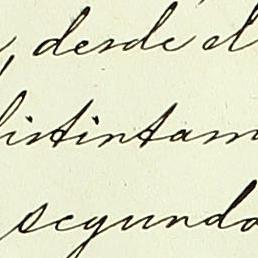 , desde el
distintam
segundo